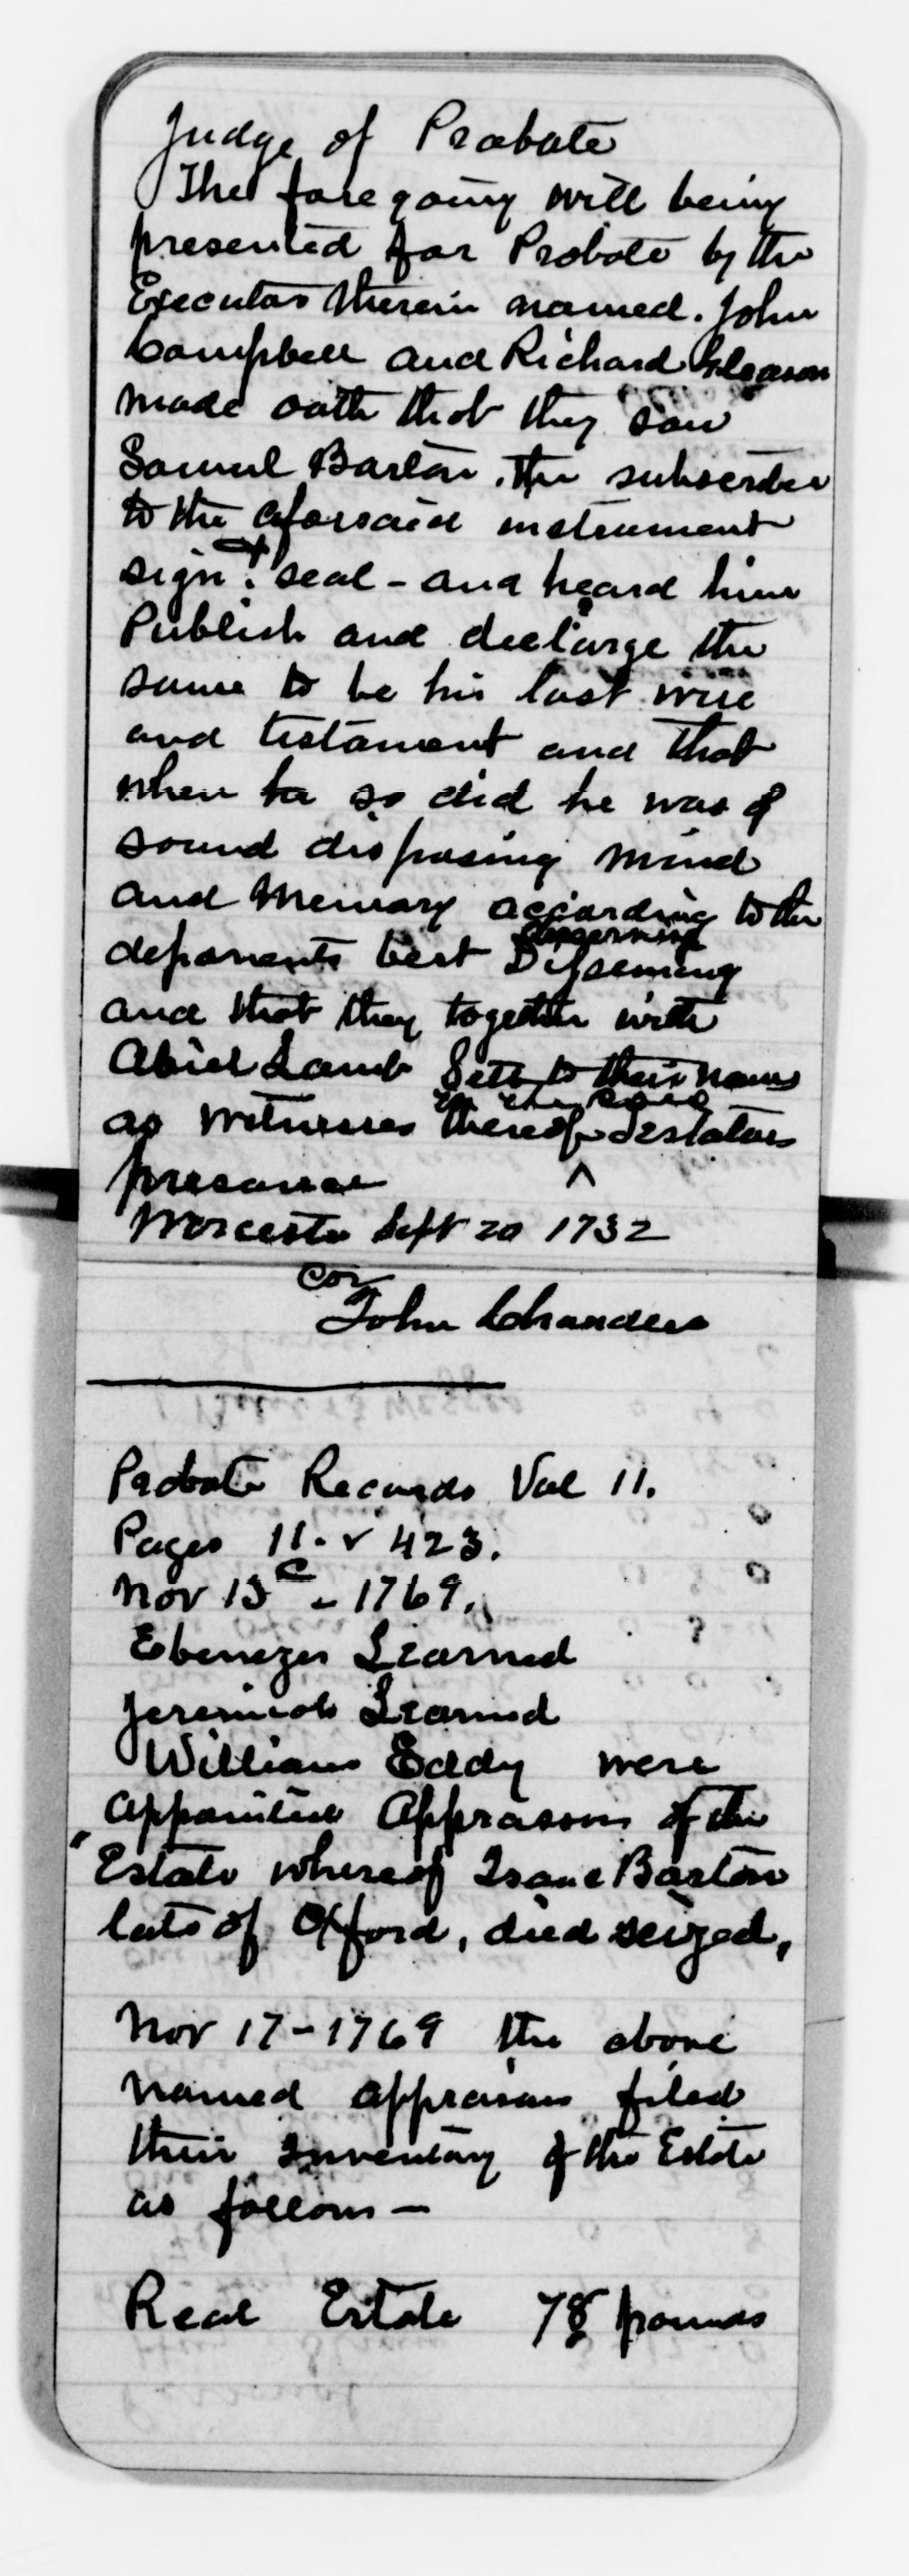 Judge of Probate
The foregoing will being
presented for Probate by the
Executors therein named. John
Campbell and Richard Gleason
made oath that they saw
Samuel Barton, the subscriber
to the aforesaid instrument
sign & seal - and heard him
Publish and declarge the
same to be his last will
and testament and that
when he so did he was of
sound disposing mind
and Memory according to the
discerning
deponents best Disserning
and that they together with
Abiel Lamb Sett to their names
in the said
as Witnesses thereof ^ Testators
presance
Worcester Sept 20 1732
Cor
John Chanders
Probate Records Vol 11.
Pages 11. & 423.
Nov 13 - 1769.
Ebenezer Learned
Jeremiah Learned
William Eddy were
appointed Apprasors of the
"Estate whereof Isaac Barton
late of Oxford, died seized,
Nov 17-1769 the above
named apprasors filed
their Inventory of the Estate
as follows -
Real Estate 78 pounds